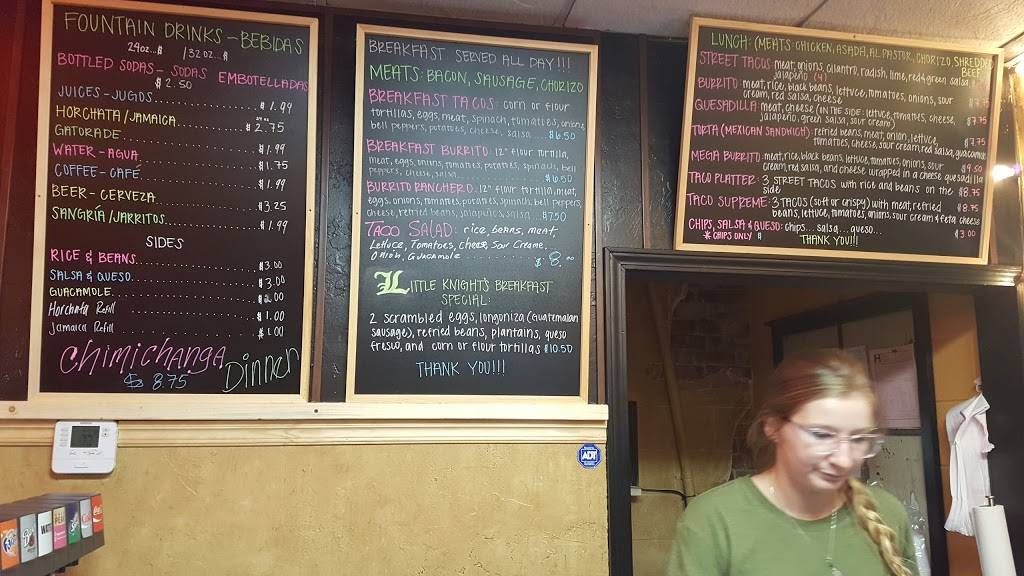 FOUNTAIN DRINKS - BEBIDAS
24oz...$ /32oz...$
BOTTLED SODAS - SODAS EMBOTELLADAS
$2.50
JUICES - JUGOS $1.99
HORCHATA/JAMAICA $2.75
GATORADE $1.99
WATER - AGUA $1.75
COFFEE - CAFÉ $1.99
BEER - CERVEZA $3.25
SANGRÍA/JARRITOS $1.99
SIDES
RICE & BEANS $3.00
SALSA & QUESO $3.00
GUACAMOLE $2.00
Horchata Refill $1.00
Jamaica Refill $1.00
Chimichanga Dinner
$8.75
BREAKFAST SERVED ALL DAY!!!
MEATS: BACON, SAUSAGE, CHORIZO
BREAKFAST TACOS: corn or flour
tortillas, eggs, meat, spinach, tomatoes, onions,
bell peppers, potatoes, cheese, salsa $6.50
BREAKFAST BURRITO: 12" flour tortilla,
meat, eggs, onions, tomatoes, potatoes, spinach, bell
peppers, cheese, salsa $6.50
BURRITO RANCHERO: 12" flour tortilla, meat,
eggs, onions, tomatoes, potatoes, spinach, bell peppers,
cheese, refried beans, jalapeños & salsa $7.50
TACO SALAD: rice, beans, meat,
Lettuce, Tomatoes, cheese, Sour Creme,
Onion, Guacamole $8.00
LITTLE KNIGHT'S BREAKFAST
SPECIAL:
2 scrambled eggs, longoniza (Guatemalan
sausage), refried beans, plantains, queso
fresco, and corn or flour tortillas $10.50
THANK YOU!!!
LUNCH: (MEATS: CHICKEN, ASADA, AL PASTOR, CHORIZO, SHREDDED
BEEF
STREET TACOS: meat, onions, cilantro, radish, lime, red & green salsa
jalapeño (4)
BURRITO: meat, rice, black beans, lettuce, tomatoes, onions, sour
cream, red salsa, cheese $7.75
QUESADILLA: meat, cheese (ON THE SIDE: lettuce, tomatoes, cheese,
jalapeño, green salsa, sour cream) $7.75
TORTA (MEXICAN SANDWICH): refried beans, meat, onion, lettuce,
tomatoes, cheese, sour cream, red salsa, guacamole
$7.75
MEGA BURRITO: meat, rice, black beans, lettuce, tomatoes, onions, sour
cream, red salsa, and cheese wrapped in a cheese quesadilla $9.50
TACO PLATTER: 3 STREET TACOS with rice and beans on the
side $8.75
TACO SUPREME: 3 TACOS (soft or crispy) with meat, refried $8.75
beans, lettuce, tomatoes, onions, sour cream & feta cheese
CHIPS, SALSA & QUESO: chips... salsa... queso... $3.00
* CHIPS ONLY $
THANK YOU!!!
ADT